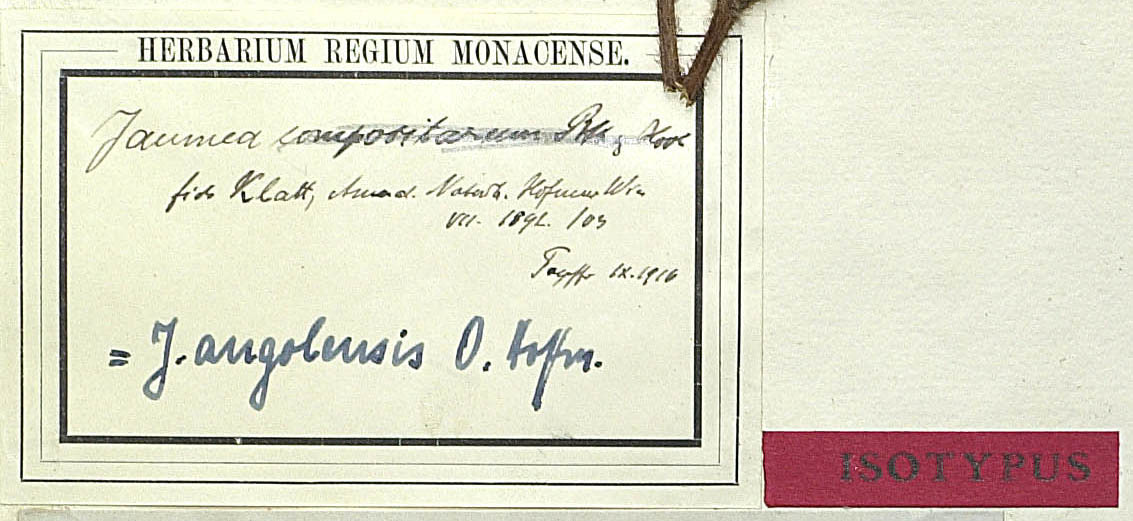 HERBARIUM REGIUM MONACENSE.
Jaumea compositarum Bth & Hook
fide Klatt, Annal. Naturh. Hofmus Wien
VII. 1892. 103
IX. 1916
= J. angolensis O. Hoffm.
ISOTYPUS